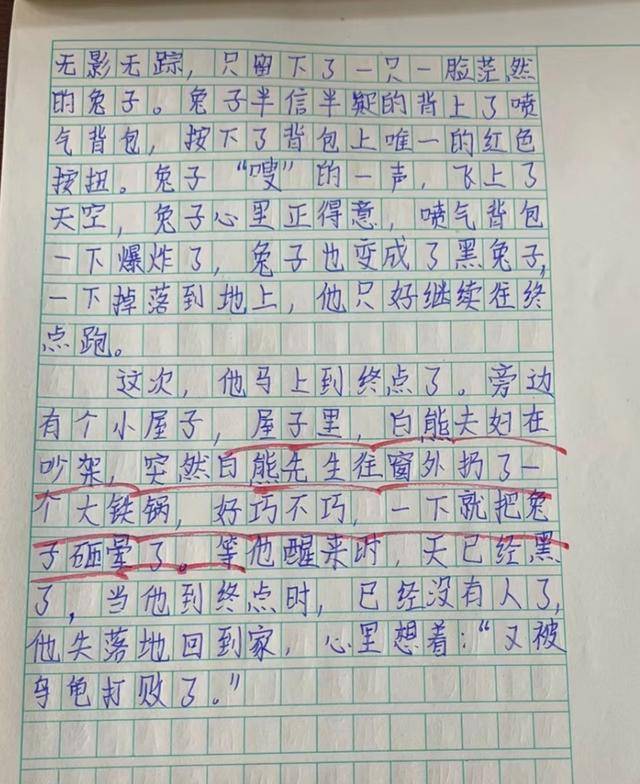 无影无踪，只留下了一只一脸茫然
的兔子。兔子半信半疑的背上了喷
气背包，按下了背包上唯一的红色
按扭。兔子“嗖”的一声，飞上了
天空，兔子心里正得意，喷气背包
一下爆炸了，兔子也变成了黑兔子，
一下掉落到地上，他只好继续往终
点跑。
这次，他马上到终点了。旁边
有个小屋子，屋子里，白熊夫妇在
吵架，突然白熊先生往窗外扔了一
个大铁锅，好巧不巧，一下就把兔
子砸晕了。等他醒来时，天已经黑
了，当他到终点时，已经没有人了，
他失落地回到家，心里想着：“又被
乌龟打败了。”